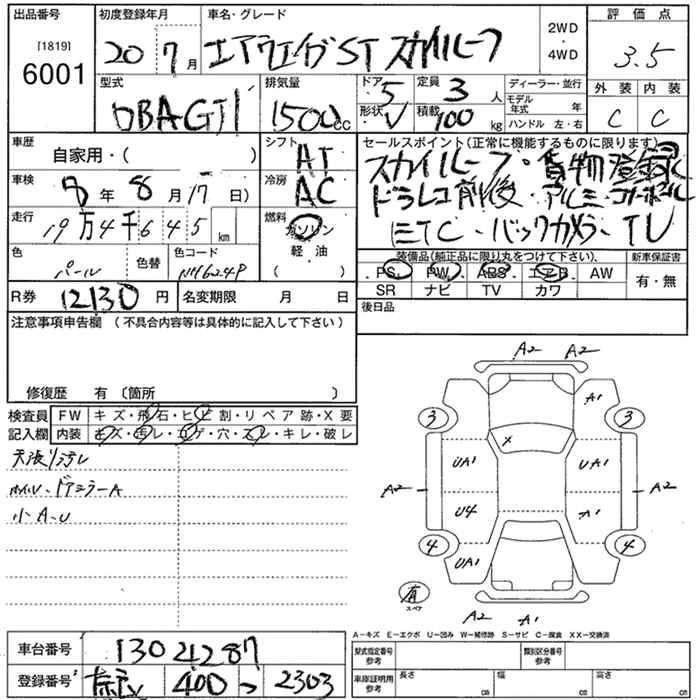 出品番号 初度登録年月 車名・グレード 評価点
[1819] 6001
20 7月 エアウェイブST スカイルーフ 2WD・4WD 3.5
型式 排気量 ドア 定員 ディーラー・並行 外装 内装
DBAGJ1 1500cc 5 3人 モデル年式 年 C C
形状 V 積載 100kg ハンドル 左・右
車歴 シフト セールスポイント(正常に機能するものに限ります)
自家用・( ) AT スカイルーフ・貨物登録
車検 冷房 ドラレコ
8年8月17日 AC ETC・バックカメラ・TV
走行 燃料
19万4千645km ガソリン 装備品(純正品に限り丸をつけて下さい) 新車保証書
軽油 PS PW ABS エアB AW 有・無
色 色替 色コード ( ) SR ナビ TV カワ
パール NH624P
R券 12130円 名変期限 月 日 後日品
注意事項申告欄(不具合内容等は具体的に記入して下さい)
修復歴 有〔箇所 〕
検査員 FW キズ・飛石・ヒビ割・リペア跡・X要
記入欄 内装 キズ・汚レ・コゲ・穴・スレ・キレ・破レ
天張リ汚レ
ホイル・ドアミラーA
小A.U
A2 A2
A1
3 3
UA1 UA1
A2 A2
U4 A1
4 4
UA1
有 スペア
A2 A1
A-キズ E-エクボ U-凹み W-補修跡 S-サビ C-腐食 XX-交換済
車台番号 1304287 型式指定番号 参考 類別区分番号 参考
登録番号 400 つ 2303 車庫証明用 参考 長さ cm 幅 cm 高さ cm